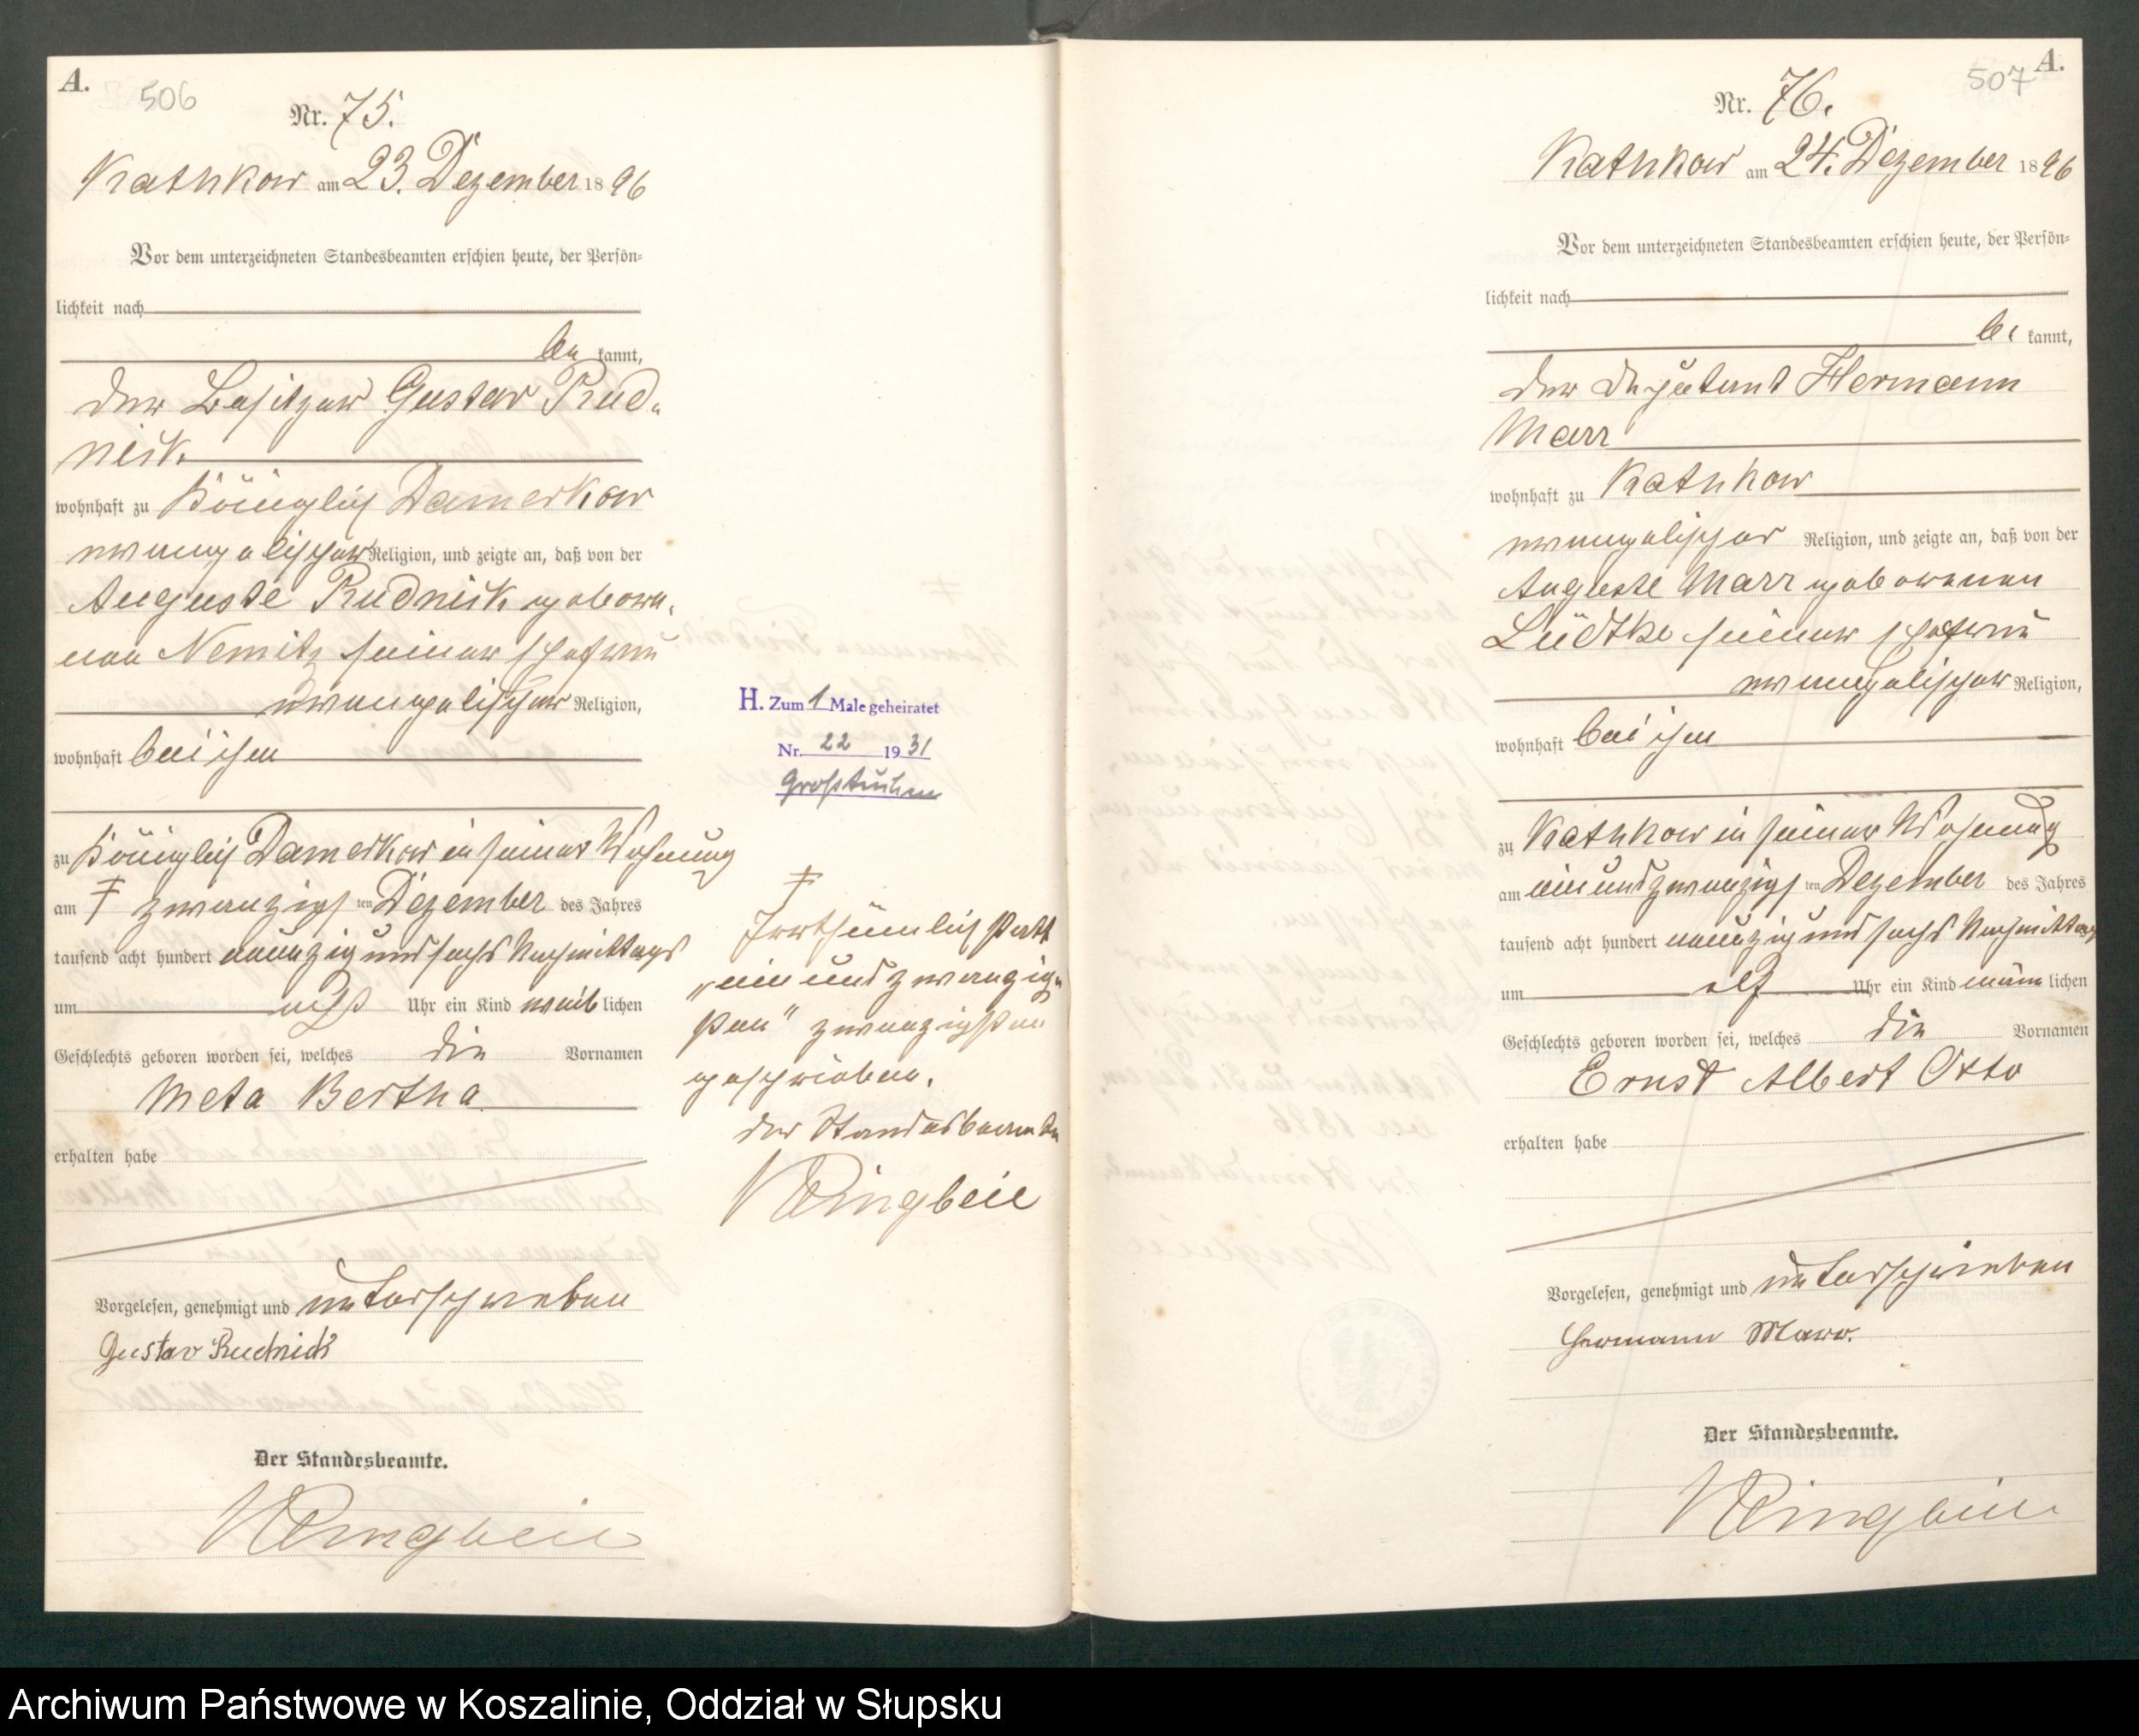 A.
506
Nr. 75.
Kathkow am 23. Dezember 1896
Vor dem unterzeichneten Standesbeamten erschien heute, der Persön-
lichkeit nach
be kannt,
der Besitzer Gustav Rud-
nick
wohnhaft zu Königlich Damerkow
evangelischer Religion, und zeigte an, daß von der
Auguste Rudnick gebore-
nen Nemitz seiner Ehefrau
evangelischer Religion,
wohnhaft bei ihm
zu Königlich Damerkow in seiner Wohnung
am ‡ zwanzigs ten Dezember des Jahres
tausend acht hundert neunzig und sechs Nachmittags
um acht Uhr ein Kind weib lichen
Geschlechts geboren worden sei, welches die Vornamen
Meta Bertha
erhalten habe
Vorgelesen, genehmigt und unterschrieben
Gustav Rudnick
Der Standesbeamte.
Klingbeil
H. Zum 1 Male geheiratet
Nr. 22 1931
Großtuchen
‡
Irrthümlich statt
„einundzwanzig-
sten“ zwanzigsten
geschrieben.
Der Standesbeamte
Klingbeil
A.
507
Nr. 76.
Kathkow am 24. Dezember 1896
Vor dem unterzeichneten Standesbeamten erschien heute, der Persön-
lichkeit nach
be kannt,
der Deputant Hermann
Marr
wohnhaft zu Kathkow
evangelischer Religion, und zeigte an, daß von der
Auguste Marr geborenen
Lüdtke seiner Ehefrau
evangelischer Religion,
wohnhaft bei ihm
zu Kathkow in seiner Wohnung
am einundzwanzigs ten Dezember des Jahres
tausend acht hundert neunzig und sechs Nachmittags
um elf Uhr ein Kind männ lichen
Geschlechts geboren worden sei, welches die Vornamen
Ernst Albert Otto
erhalten habe
Vorgelesen, genehmigt und unterschrieben
Hermann Marr.
Der Standesbeamte.
Klingbeil
Archiwum Państwowe w Koszalinie, Oddział w Słupsku